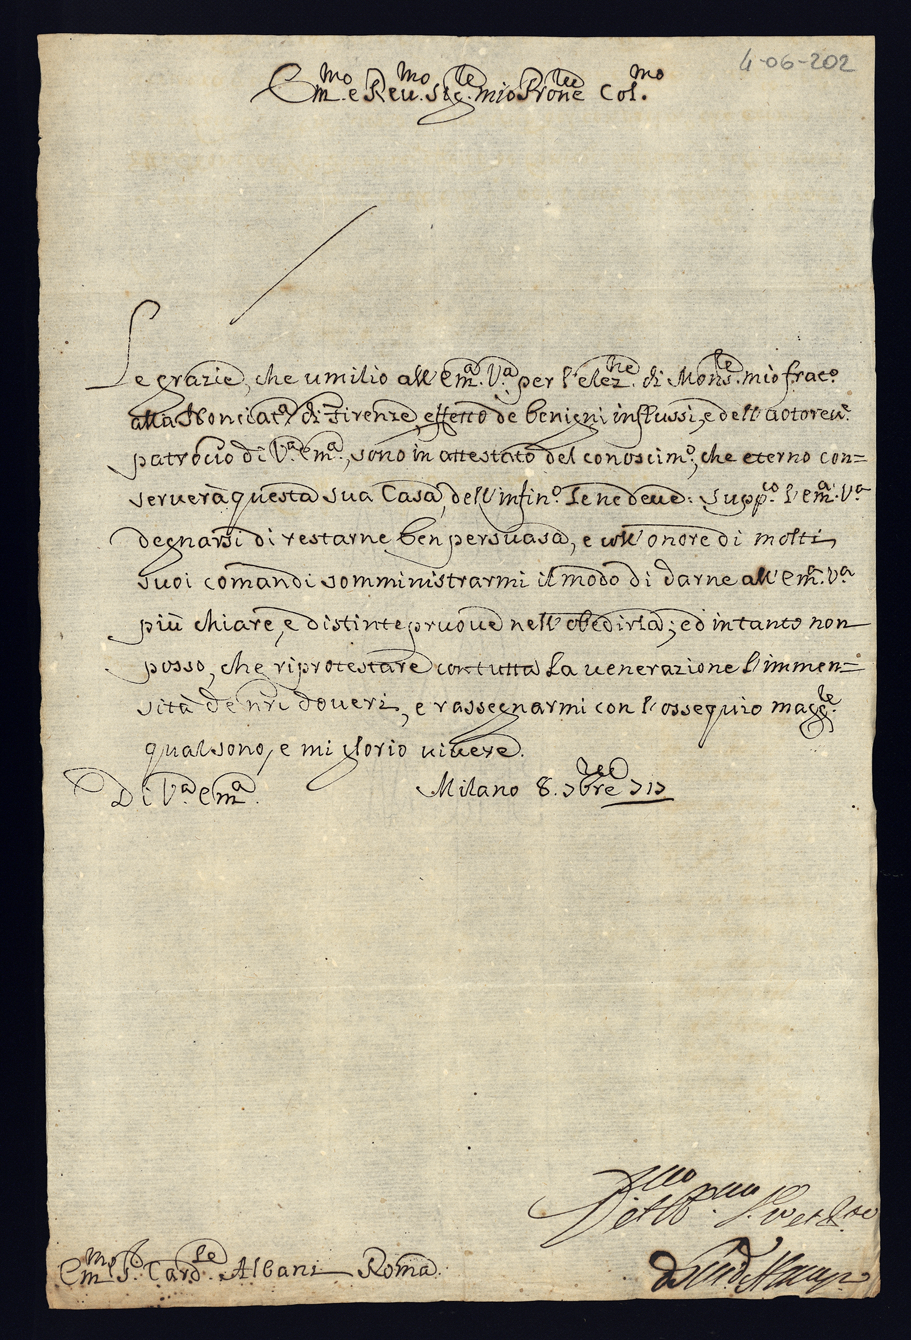 4-06-202
Em.mo e Rev.mo Sig.re mio Prone Col.mo
Le grazie, che umilio all'Em.a V.a per l'elez.ne di Mons.re mio frat.o
alla Nonciat.a di Firenze, effetto de benigni influssi, e dell'autorev.e
patrocio di V.a Em.a, sono in attestato del conoscim.o, che eterno con=
serverà questa sua Casa, dell'infin.o Le ne deve. Supp.co l'Em.a V.a
degnarsi di restarne ben persuasa, e coll'onore di molti
suoi comandi somministrarmi il modo di darne all'Em.a V.a
più chiare, e distinte pruove nell'obedirla; ed intanto non
posso, che riprotestare con tutta la venerazione l'immen=
sità de nri doveri, e rassegnarmi con l'ossequio mag.re
qual sono, e mi glorio vivere.
Di V.a Em.a Milano 8. 7bre 717
Em.mo S. Card.le Albani Roma